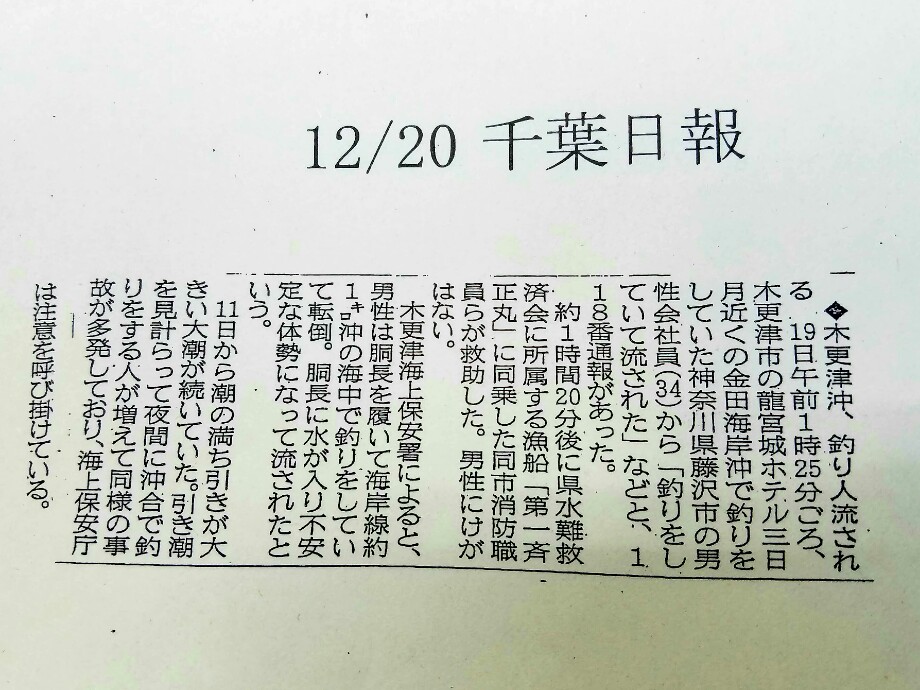 12/20 千葉日報
◆木更津沖、釣り人流され
る　19日午前1時25分ごろ、
木更津市の龍宮城ホテル三日
月近くの金田海岸沖で釣りを
していた神奈川県藤沢市の男
性会社員(34)から「釣りをし
ていて流された」などと、1
18番通報があった。
約1時間20分後に県水難救
済会に所属する漁船「第一斉
正丸」に同乗した同市消防職
員らが救助した。男性にけが
はない。
木更津海上保安署によると、
男性は胴長を履いて海岸線約
1㌔沖の海中で釣りをしてい
て転倒。胴長に水が入り不安
定な体勢になって流されたと
いう。
11日から潮の満ち引きが大
きい大潮が続いていた。引き潮
を見計らって夜間に沖合で釣
りをする人が増えて同様の事
故が多発しており、海上保安庁
は注意を呼び掛けている。